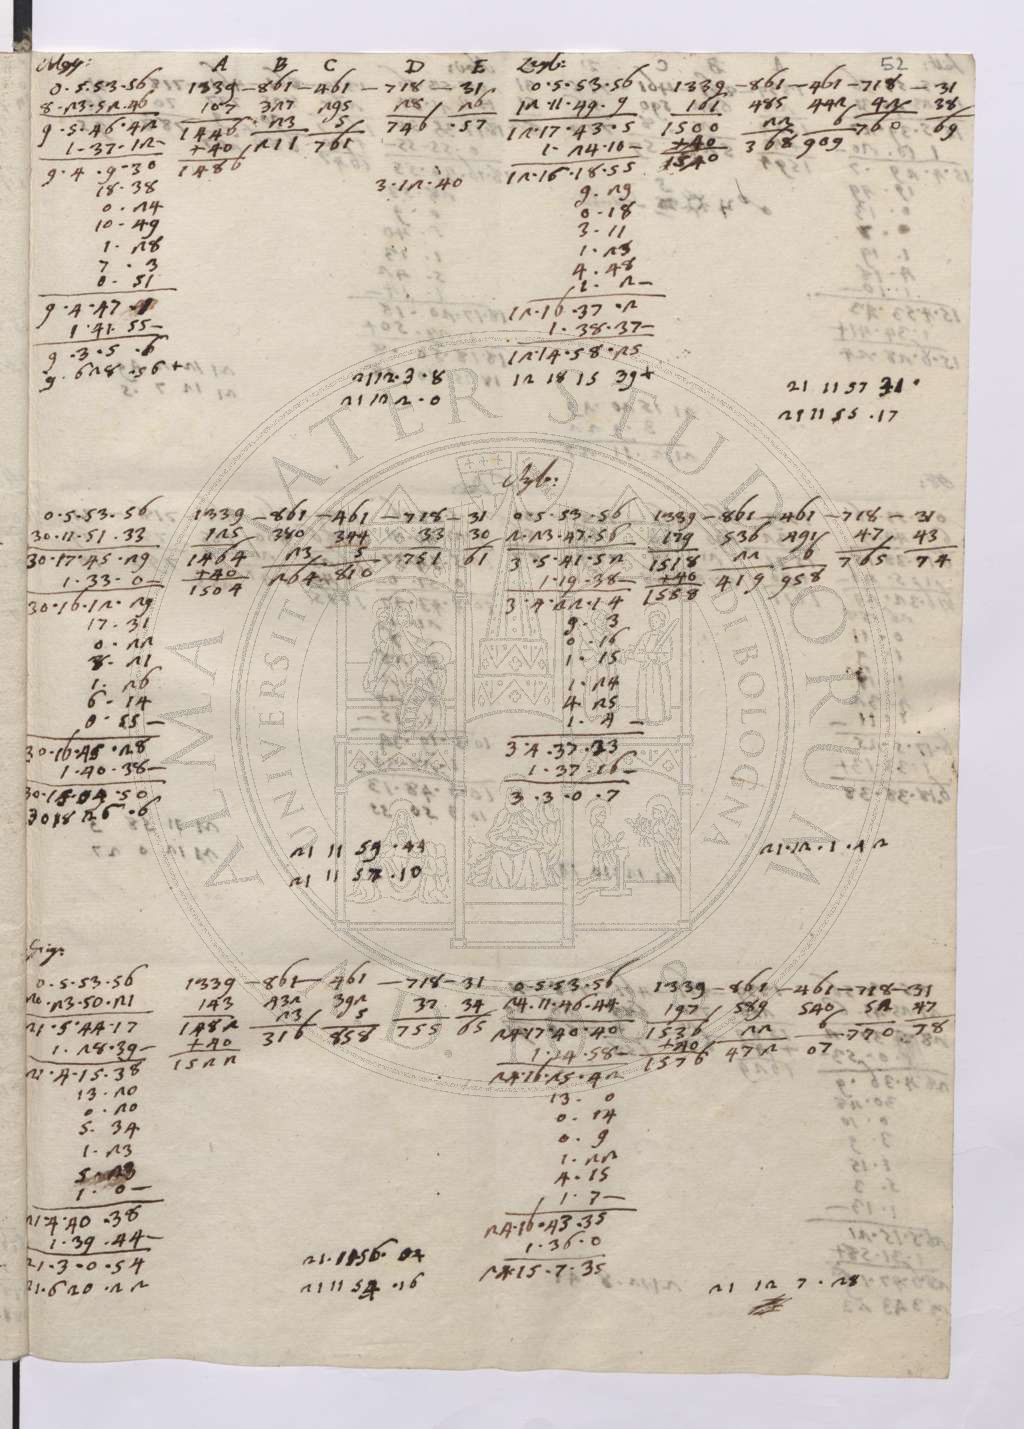 52
A B C D E
0.5.53.56 1339 - 861 - 461 - 718 - 31
8.23.52.46 107 327 295 28 26
9.5.46.42 1446 23 5 746 57
1.37.12- +40 211 761
9.4.9.30 1486
18.38
3.12.40
0.24
10.49
1.28
7.3
0.51
9.4.47.
1.41.55-
9.3.5.6
9.628.56+
2112.3.8
2112 2.0
0.5.53.56 1339 - 861 - 461 - 718 - 31
12.11.49.9 161 485 442 42 38
12.17.43.5 1500 22 6 760 69
1.24.10- +40 368 909
12.16.18.55 1540
9.29
0.18
3.11
1.23
4.48
1.2-
12.16.37.2
1.38.37-
12.14.58.25
12 18 15 39+
21 11 57 31
21 11 55.17
0.5.53.56 1339 - 861 - 461 - 718 - 31
30.11.51.33 125 380 344 33 30
30.17.45.29 1464 23 5 751 61
1.33.0- +40 264 810
30.16.12.29 1504
17.31
0.22
8.21
1.26
6.14
0.55-
30.16.45.28
1.40.38-
30.15.04.50
3018 26.6
21 11 59.44
21 11 57.10
0.5.53.56 1339 - 861 - 461 - 718 - 31
2.23.47.56 179 536 491 47 43
3.5.41.52 1518 22 6 765 74
1.19.38- +40 419 958
3.4.22.14 1558
9.3
0.16
1.15
1.24
4.25
1.4-
3.4.37.23
1.37.16-
3.3.0.7
21.12.1.42
0.5.53.56 1339 - 861 - 461 - 718 - 31
20.23.50.21 143 432 392 37 34
21.5.44.17 1482 23 5 755 65
1.28.39- +40 316 858
21.4.15.38 1522
13.20
0.20
5.34
1.23
5.23
1.0-
21.4.40.38
1.39.44-
21.3.0.54
21.620.22
21.1156.02
21 11 54.16
0.5.53.56 1339 - 861 - 461 - 718 - 31
24.11.46.44 197 589 540 52 47
24.17.40.40 1536 22 6 770 78
1.14.58- +40 472 07
24.16.25.42 1576
13.0
0.14
0.9
1.22
4.15
1.7-
24.16.43.35
1.36.0
24.15.7.35
21 12 7.28
ALMA MATER STUDIORUM
UNIVERSITÀ DI BOLOGNA